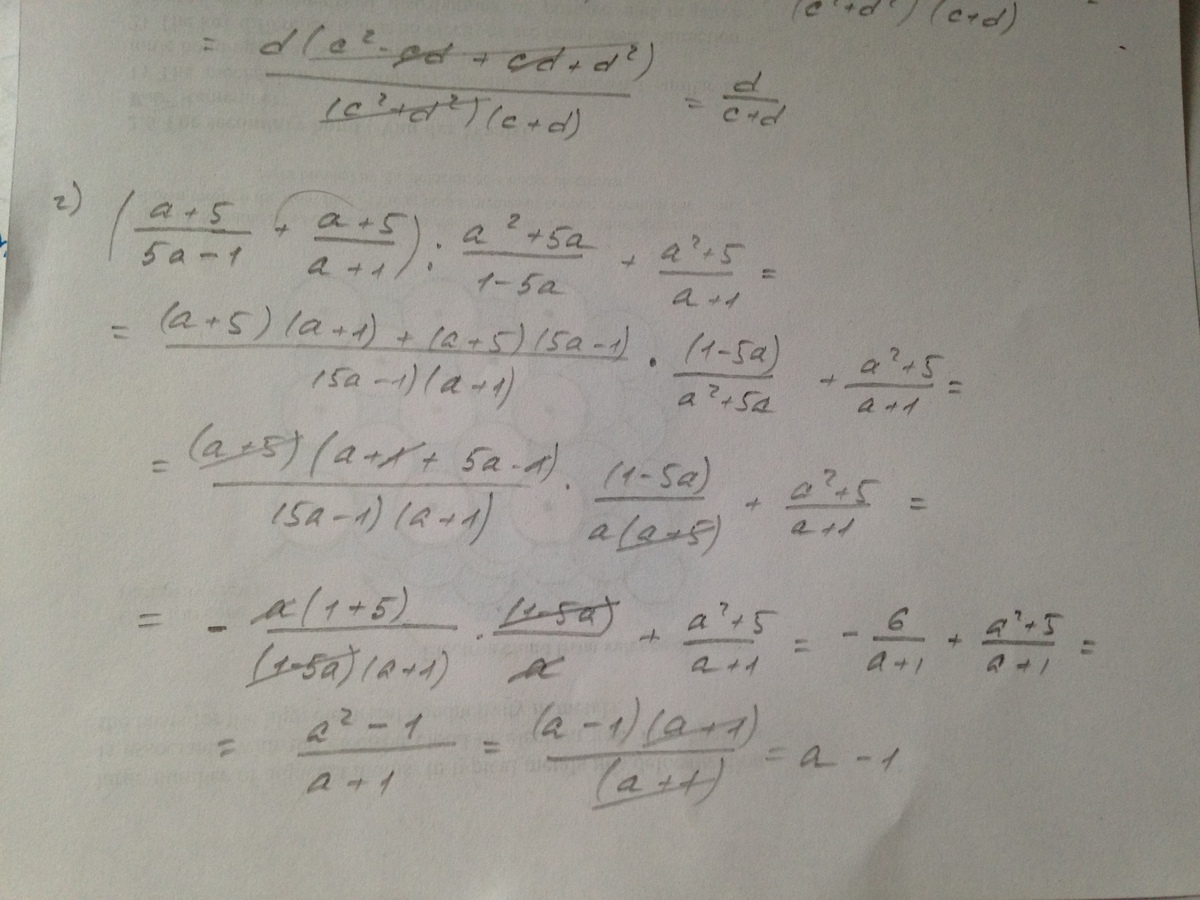 (c²+d²)(c+d)
= d(c²-cd+cd+d²)/(c²+d²)(c+d) = d/(c+d)
г) ((a+5)/(5a-1) + (a+5)/(a+1)) : (a²+5a)/(1-5a) + (a²+5)/(a+1) =
= ((a+5)(a+1)+(a+5)(5a-1))/((5a-1)(a+1)) · (1-5a)/(a²+5a) + (a²+5)/(a+1) =
= (a+5)(a+1+5a-1)/((5a-1)(a+1)) · (1-5a)/(a(a+5)) + (a²+5)/(a+1) =
= - a(1+5)/((1-5a)(a+1)) · (1-5a)/a + (a²+5)/(a+1) = - 6/(a+1) + (a²+5)/(a+1) =
= (a²-1)/(a+1) = (a-1)(a+1)/(a+1) = a-1